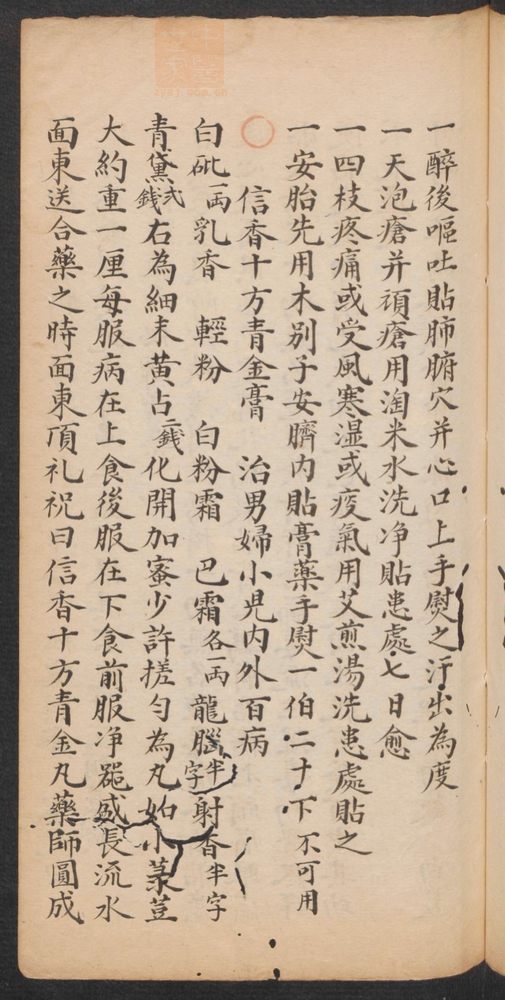 一醉後嘔吐貼肺腑穴并心口上手熨之汗出為度
一天泡瘡并頑瘡用淘米水洗净貼患處七日愈
一四枝疼痛或受風寒湿或疫氣用艾煎湯洗患處貼之
一安胎先用木别子安臍内貼膏藥手熨一伯二十下不可用
信香十方青金膏 治男婦小児内外百病
白砒一両乳香 輕粉 白粉霜 巴霜各一両龍腦半字射香半字
青黛弍錢右為細末黄占二錢化開加蜜少許搓匀為丸如小菉荳
大約重一厘每服病在上食後服在下食前服净器盛長流水
面東送合藥之時面東頂礼祝曰信香十方青金丸藥師圓成